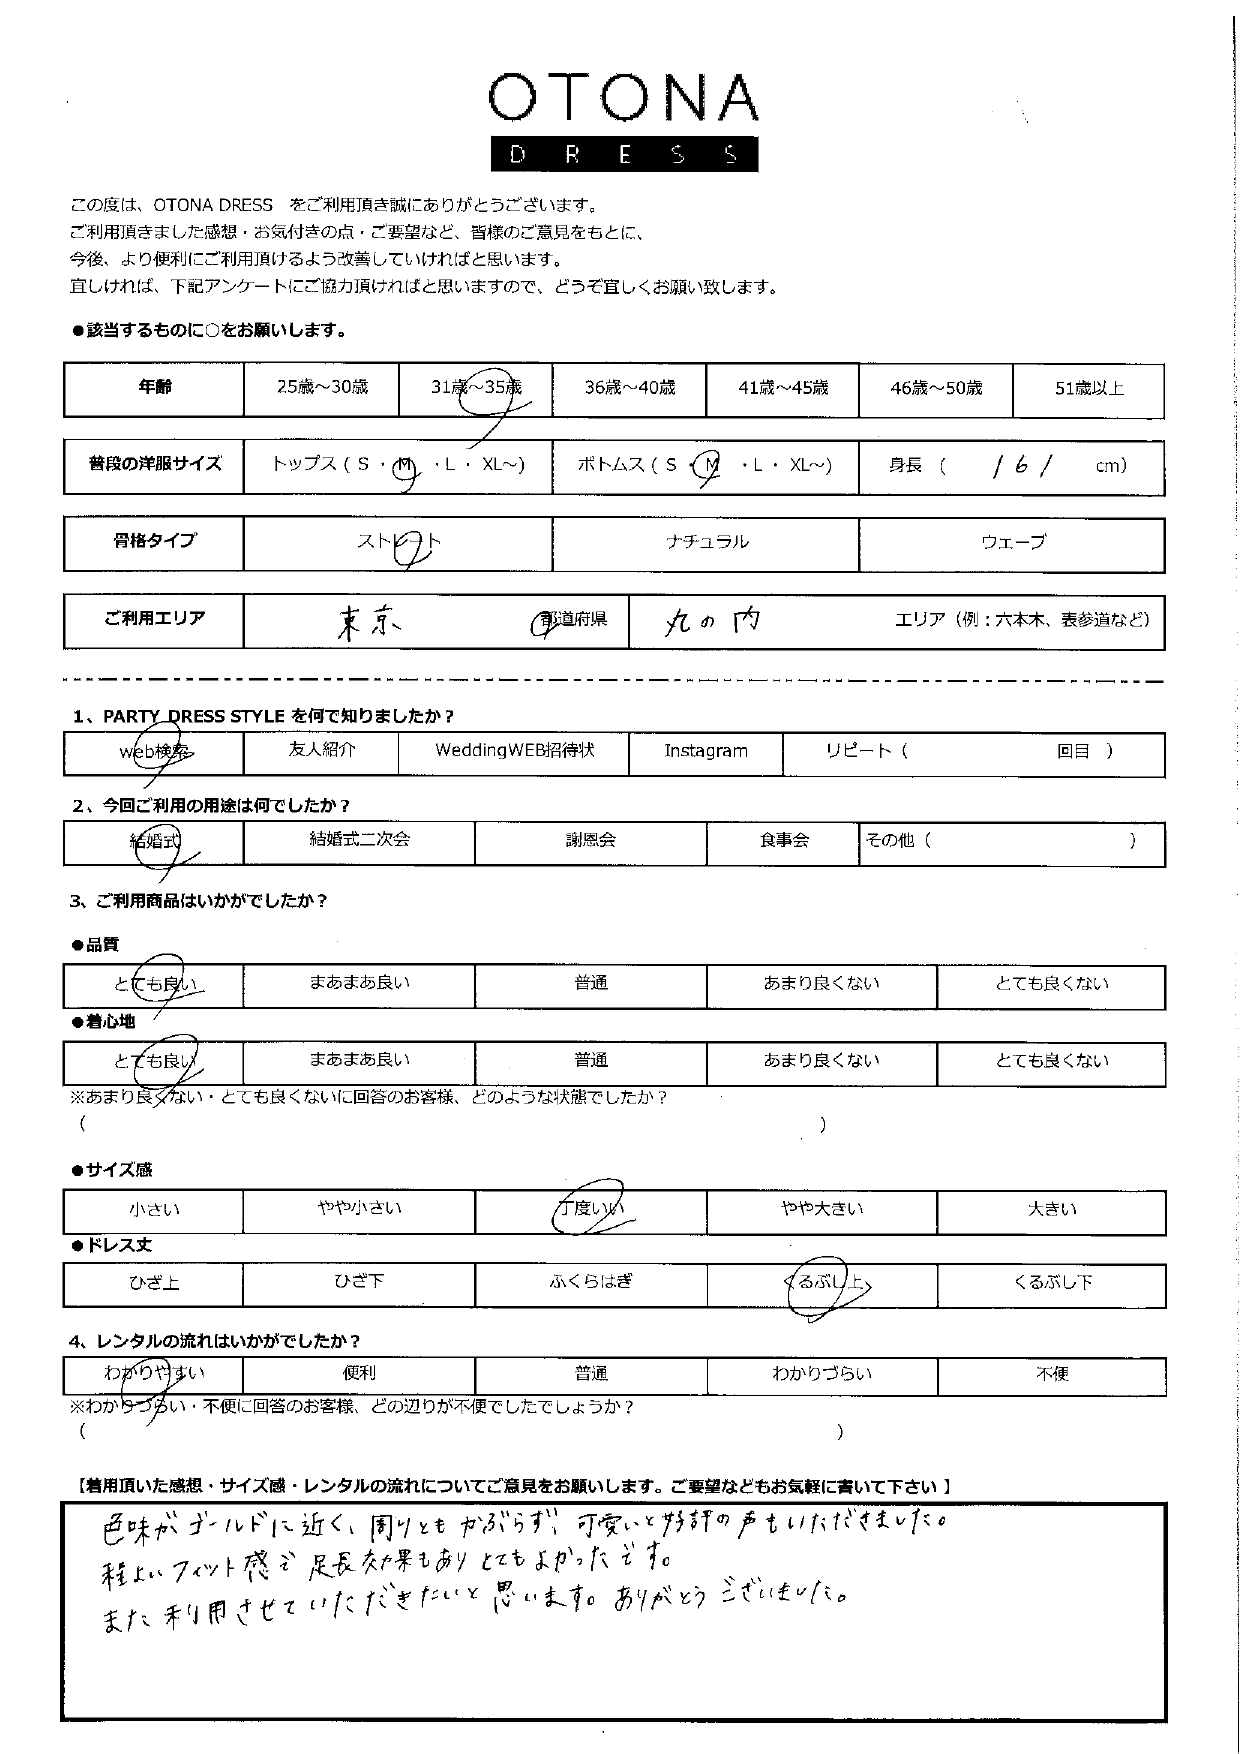 OTONA
DRESS
この度は、OTONA DRESS をご利用頂き誠にありがとうございます。
ご利用頂きました感想・お気付きの点・ご要望など、皆様のご意見をもとに、
今後、より便利にご利用頂けるよう改善していければと思います。
宜しければ、下記アンケートにご協力頂ければと思いますので、どうぞ宜しくお願い致します。
●該当するものに○をお願いします。
年齢 25歳～30歳 31歳～35歳 36歳～40歳 41歳～45歳 46歳～50歳 51歳以上
普段の洋服サイズ トップス ( S ・ M ・L ・ XL～) ボトムス ( S ・ M ・L ・ XL～) 身長 ( 161 cm)
骨格タイプ ストレート ナチュラル ウェーブ
ご利用エリア 東京 都道府県 丸の内 エリア（例：六本木、表参道など）
1、PARTY DRESS STYLE を何で知りましたか？
web検索 友人紹介 WeddingWEB招待状 Instagram リピート（ 回目 ）
2、今回ご利用の用途は何でしたか？
結婚式 結婚式二次会 謝恩会 食事会 その他（ ）
3、ご利用商品はいかがでしたか？
●品質
とても良い まあまあ良い 普通 あまり良くない とても良くない
●着心地
とても良い まあまあ良い 普通 あまり良くない とても良くない
※あまり良くない・とても良くないに回答のお客様、どのような状態でしたか？
（ ）
●サイズ感
小さい やや小さい 丁度いい やや大きい 大きい
●ドレス丈
ひざ上 ひざ下 ふくらはぎ くるぶし上 くるぶし下
4、レンタルの流れはいかがでしたか？
わかりやすい 便利 普通 わかりづらい 不便
※わかりづらい・不便に回答のお客様、どの辺りが不便でしたでしょうか？
（ ）
【着用頂いた感想・サイズ感・レンタルの流れについてご意見をお願いします。ご要望などもお気軽に書いて下さい 】
色味がゴールドに近く、周りともかぶらず、可愛いと好評の声もいただきました。
程よいフィット感で足長効果もありとてもよかったです。
また利用させていただきたいと思います。ありがとうございました。